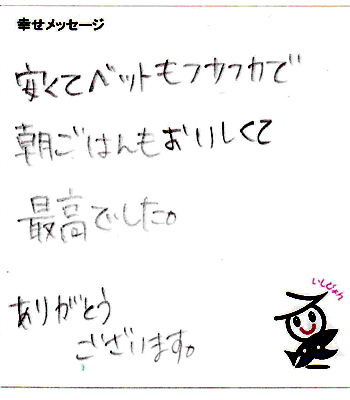 幸せメッセージ
安くてベットもフカフカで
朝ごはんもおいしくて
最高でした。
ありがとう
ございます。